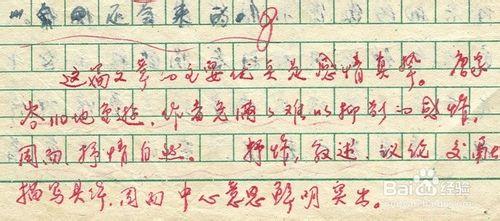 还会来的
这篇文章的主要优点是感情真挚。唐家
旧地重游，作者充满了难以抑制的感情，
因而抒情自然。 抒情，叙述，议论交融
描写具体，因而中心意思鲜明突出。
Baidu经验